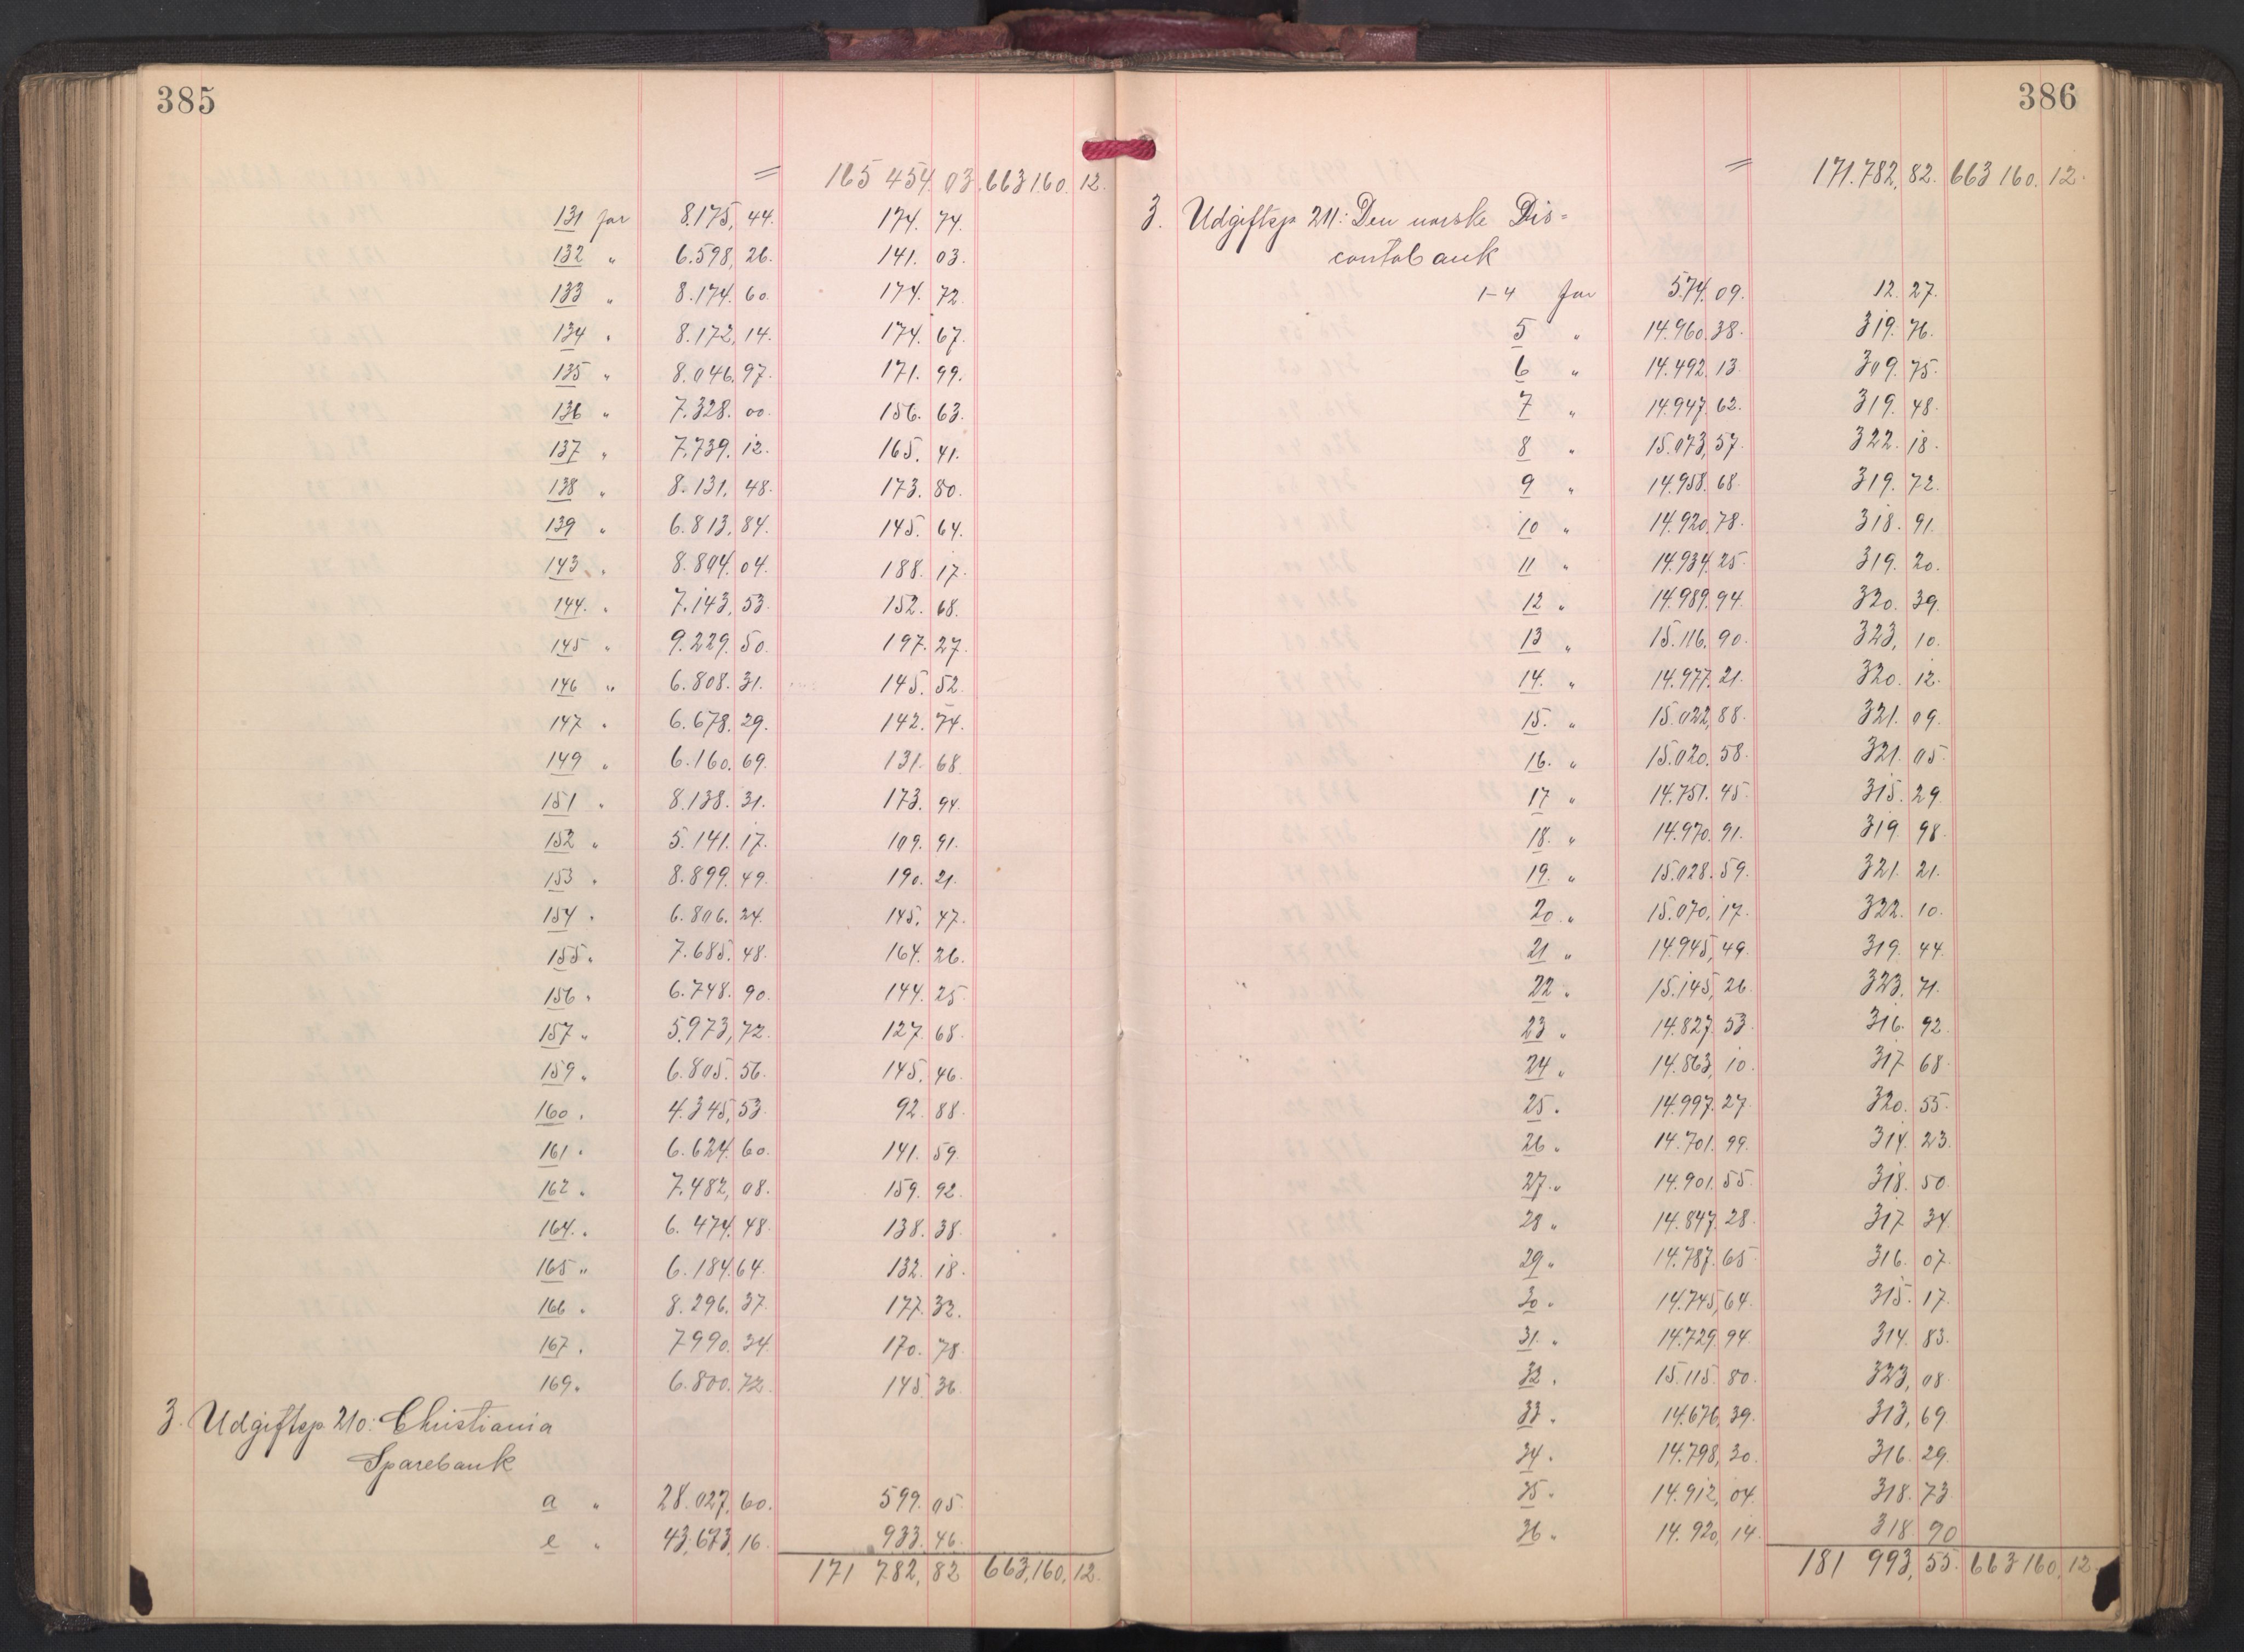 385
= 165 454 03. 663 160. 12.
131 for 8.175, 44. 174. 74.
132 " 6.598, 26. 141. 03.
133 " 8.174. 60. 174. 72.
134 " 8.172, 14. 174. 67.
135 " 8.046. 97. 171. 99.
136 " 7.328. 00. 156. 63.
137 " 7.739. 12. 165. 41.
138 " 8.131. 48. 173. 80.
139 " 6.813, 84. 145. 64.
143 " 8.804. 04. 188. 17.
144. " 7.143, 53. 152. 68.
145 " 9.229. 50. 197. 27.
146 " 6.808. 31. 145. 52.
147 " 6.678. 29. 142. 74.
149 " 6.160. 69. 131. 68.
151 " 8.138. 31. 173. 94.
152 " 5.141. 17. 109. 91.
153 " 8.899. 49. 190. 21.
154 " 6.806. 24. 145. 47.
155 " 7.685. 48. 164. 26.
156 " 6.748. 90. 144. 25.
157 " 5.973, 72. 127. 68.
159 " 6.805. 56. 145. 46.
160 " 4.345, 53. 92. 88.
161 " 6.624. 60. 141. 59.
162 " 7.482, 08. 159. 92.
164. " 6.474. 48. 138. 38.
165 " 6.184. 64. 132. 18.
166 " 8.296. 37. 177. 32.
167 " 7990. 34. 170. 78.
169 " 6.800. 72. 145. 36.
3. Udgiftsp. 210: Christiania
Sparebank
a " 28.027, 60. 599. 05.
e " 43.673, 16. 933. 46.
171 782, 82 663,160, 12.
386
= 171.782, 82. 663 160. 12.
3. Udgiftsp 211: Den norske Dis=
contobank
1-4 for 574. 09. 12. 27.
5 " 14.960. 38. 319. 76.
6 " 14.492. 13. 309. 75.
7 " 14.947. 62. 319. 48.
8 " 15.073, 57. 322. 18.
9 " 14.958. 68. 319. 72.
10 " 14.920, 78. 318. 91.
11 " 14.934. 25. 319. 20.
12 " 14.989. 94. 320. 39.
13 " 15.116. 90. 323, 10.
14. " 14.977. 21. 320. 12.
15. " 15.022, 88. 321. 09.
16. " 15.020. 58. 321. 05.
17 " 14.751. 45. 315. 29.
18. " 14.970. 91. 319. 98.
19. " 15.028. 59. 321. 21.
20. " 15.070, 17. 322. 10.
21 " 14.945, 49. 319. 44.
22 " 15.145, 26. 323. 71.
23 " 14.827. 53. 316. 92.
24 " 14.863, 10. 317. 68.
25. 14.997. 27. 320. 55.
26 " 14.701. 99. 314. 23.
27. " 14.901. 55. 318. 50.
28 " 14.847. 28. 317. 34.
29 " 14.787. 65. 316. 07.
30 " 14.745, 64. 315. 17.
31. " 14.729. 94. 314. 83.
32. 15.115. 80. 323, 08.
33 " 14.676, 39. 313, 69.
34. 14.798, 30. 316. 29.
35 " 14.912, 04. 318. 73.
36 " 14.920, 14. 318. 90
181 993, 55. 663 160, 12.